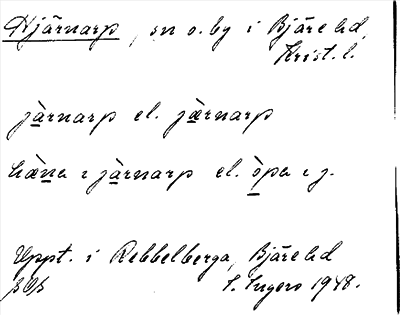 Hjärnarp, sn o. by i Bjäre hd,
Krist. l.
jà̱rnarp el. jæ̱̀rnarp
hæ̱̀na ı jà̱rnarp el. ò̱pa ı j.
Uppt. i Rebbelberga, Bjäre hd
S. Ingers 1948.